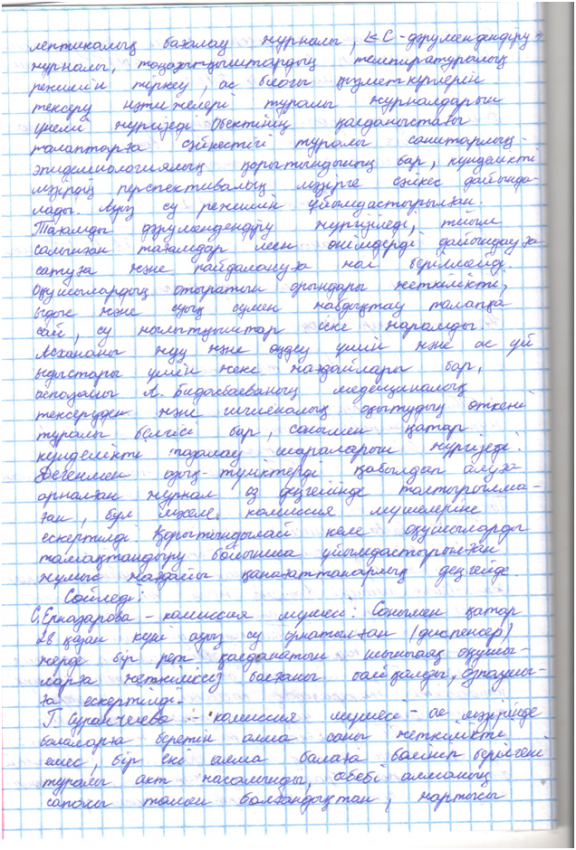 лептикалық бағалау журналы, "С-дәрумендендіру"
журналы, тоңазытқыштардың температуралық
режимін тіркеу, ас блогы қызметкерлерін
тексеру нәтижелері туралы журналдарын
үнемі жүргізеді. Объектінің қолданыстағы
талаптарға сәйкестігі туралы санитарлық-
эпидемиологиялық қорытындының бар, күнделікті
мәзірдің перспективалық мәзірге сәйкес дайында-
лады. Ауыз су режимін ұйымдастырылған.
Тағамды дәрумендендіру жүргізіледі, тыйым
салынған тағамдар мен өнімдерді дайындауға
сатуға және пайдалануға жол берілмейді.
Оқушылардың отыратын орындары жеткілікті,
ыдыс және сумен жабдықтау талапқа
сай, су жылытқыштар іске жарамды.
Асхананы жуу және өңдеу үшін және ас үй
ыдыстары үшін жеке жағдайлары бар,
аспазшы А. Бидасбаеваның медециналық
тексеруден және гигиеналық оқытудың өткені
туралы белгісі бар, сонымен қатар
күнделікті тазалау шараларын жүргізеді.
Дегенмен азық-түліктерді қабылдап алуға
арналған журнал өз деңгейінде толтырылма-
ған, бұл мәселе комиссия мүшелеріне
ескертілді. Қорытындылай келе оқушыларды
тамақтандыру бойынша ұйымдастырылған
жұмыс жағдайы қанағаттанарлық деңгейде.
Сөйледі:
С. - комиссия мүшесі: Сонымен қатар
28 қазан күні ауыз су орнатылған (диспенсер)
жерде бір рет қолданатын шыныаяқ оқушы-
ларға жеткіліксіз болғаны байқалды,
ға ескертілді.
Г. - комиссия мүшесі - ас мәзірінде
балаларға беретін алма саны жеткілікті
емес, бір екі алма балаға бөлініп берілгені
туралы акт жасалынды, себебі алманың
сапасы төмен болғандықтан, жартысы